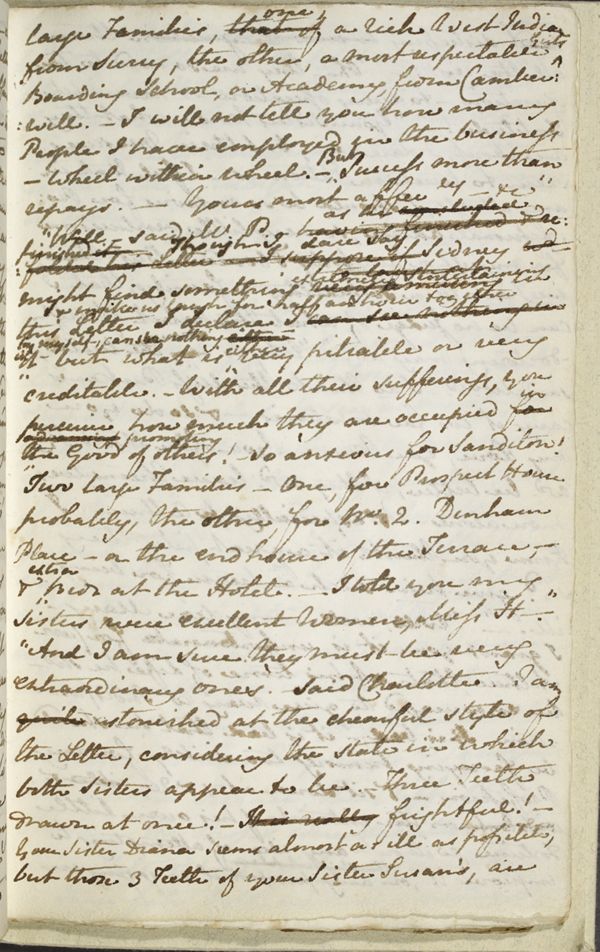 large Families, that of one, a rich West Indian
from Surry, the other, a most respectable Girls
Boarding School, or Academy, from Camber:
:well. – I will not tell you how many
People I have employed in the business
– Wheel within wheel. – But Success more than
repays. – Yours most affecly – &c"
"Well – said Mr. P. – as he concluded having finished & re:
finished it.
:folded his Letter – Though I dare say I suppose if Sidney
might find something extremely entertaining very amusing in
this Letter & make us laugh for half an hour together
I declare I can see nothing in
by myself, can see nothing
it but what is either very pitiable or very
"creditable. – With all their sufferings, you
perceive how much they are occupied in for
promoting
the Good of others! – So anxious for Sanditon!
"Two large Families – One, for Prospect House
probably, the other, for No. 2. Denham
Place – or the end house of the Terrace, –
& extra Beds at the Hotel. – I told you my
Sisters were excellent Women, Miss H–."
"And I am sure they must be very
extraordinary ones. – said Charlotte. I am
quite astonished at the chearful style of
the Letter, considering the state in which
both Sisters appear to be. – Three Teeth
drawn at once! – It is really frightful! –
Your Sister Diana seems almost as ill as possible,
but those 3 Teeth of your Sister Susan's, are